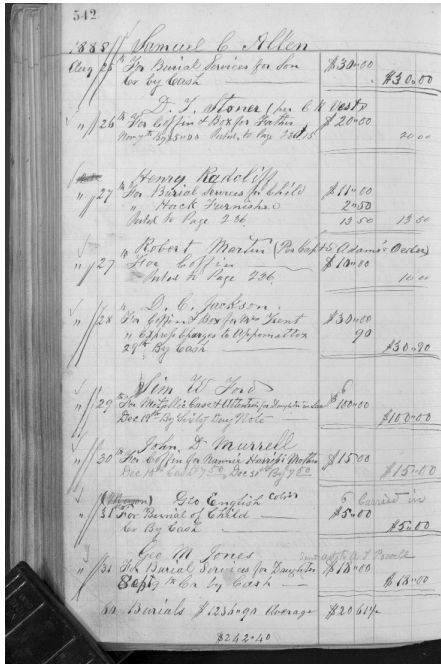 542
1888 Samuel C Allen
Aug 25th For Burial Services for Son $30.00
Cr by Cash $30.00
D. T. Stoner (per C H Vest)
" 26th For Coffin & Box for Father $20.00
Posted to Page 20.00
Henry Radcliff
" 27th For Burial Services for Child $11.00
" Hack Furnished 2.50
Posted to Page 236 13 50 13 50
Robert Martin (Per Capt S. Adams Order)
" 27th For Coffin $10.00
Posted to Page 236 10.00
D. C. Jackson
" 28 For Coffin & Box for Mrs Trent $30.00
" Express Charges to Appomattox 90
29th By Cash $30.90
Sim W Ford
" 29th For Metallic Case & Attention for Daughter in Law $100.00
Dec 19th By Sixty Day Note $100.00
John D Murrell
" 30th For Coffin for Nannie Harris's Mother $15.00
Dec 15th Cash 7 50, Dec 30th By 7 50 $15.00
Geo English Col'd
" 31st For Burial of Child $5.00
Cr By Cash $5.00
Geo M Jones
" 31 For Burial Services for Daughter $18.00
Sept 9th Cr by Cash $18.00
60 Burials $1236.90 Average $20 61½
$242.40